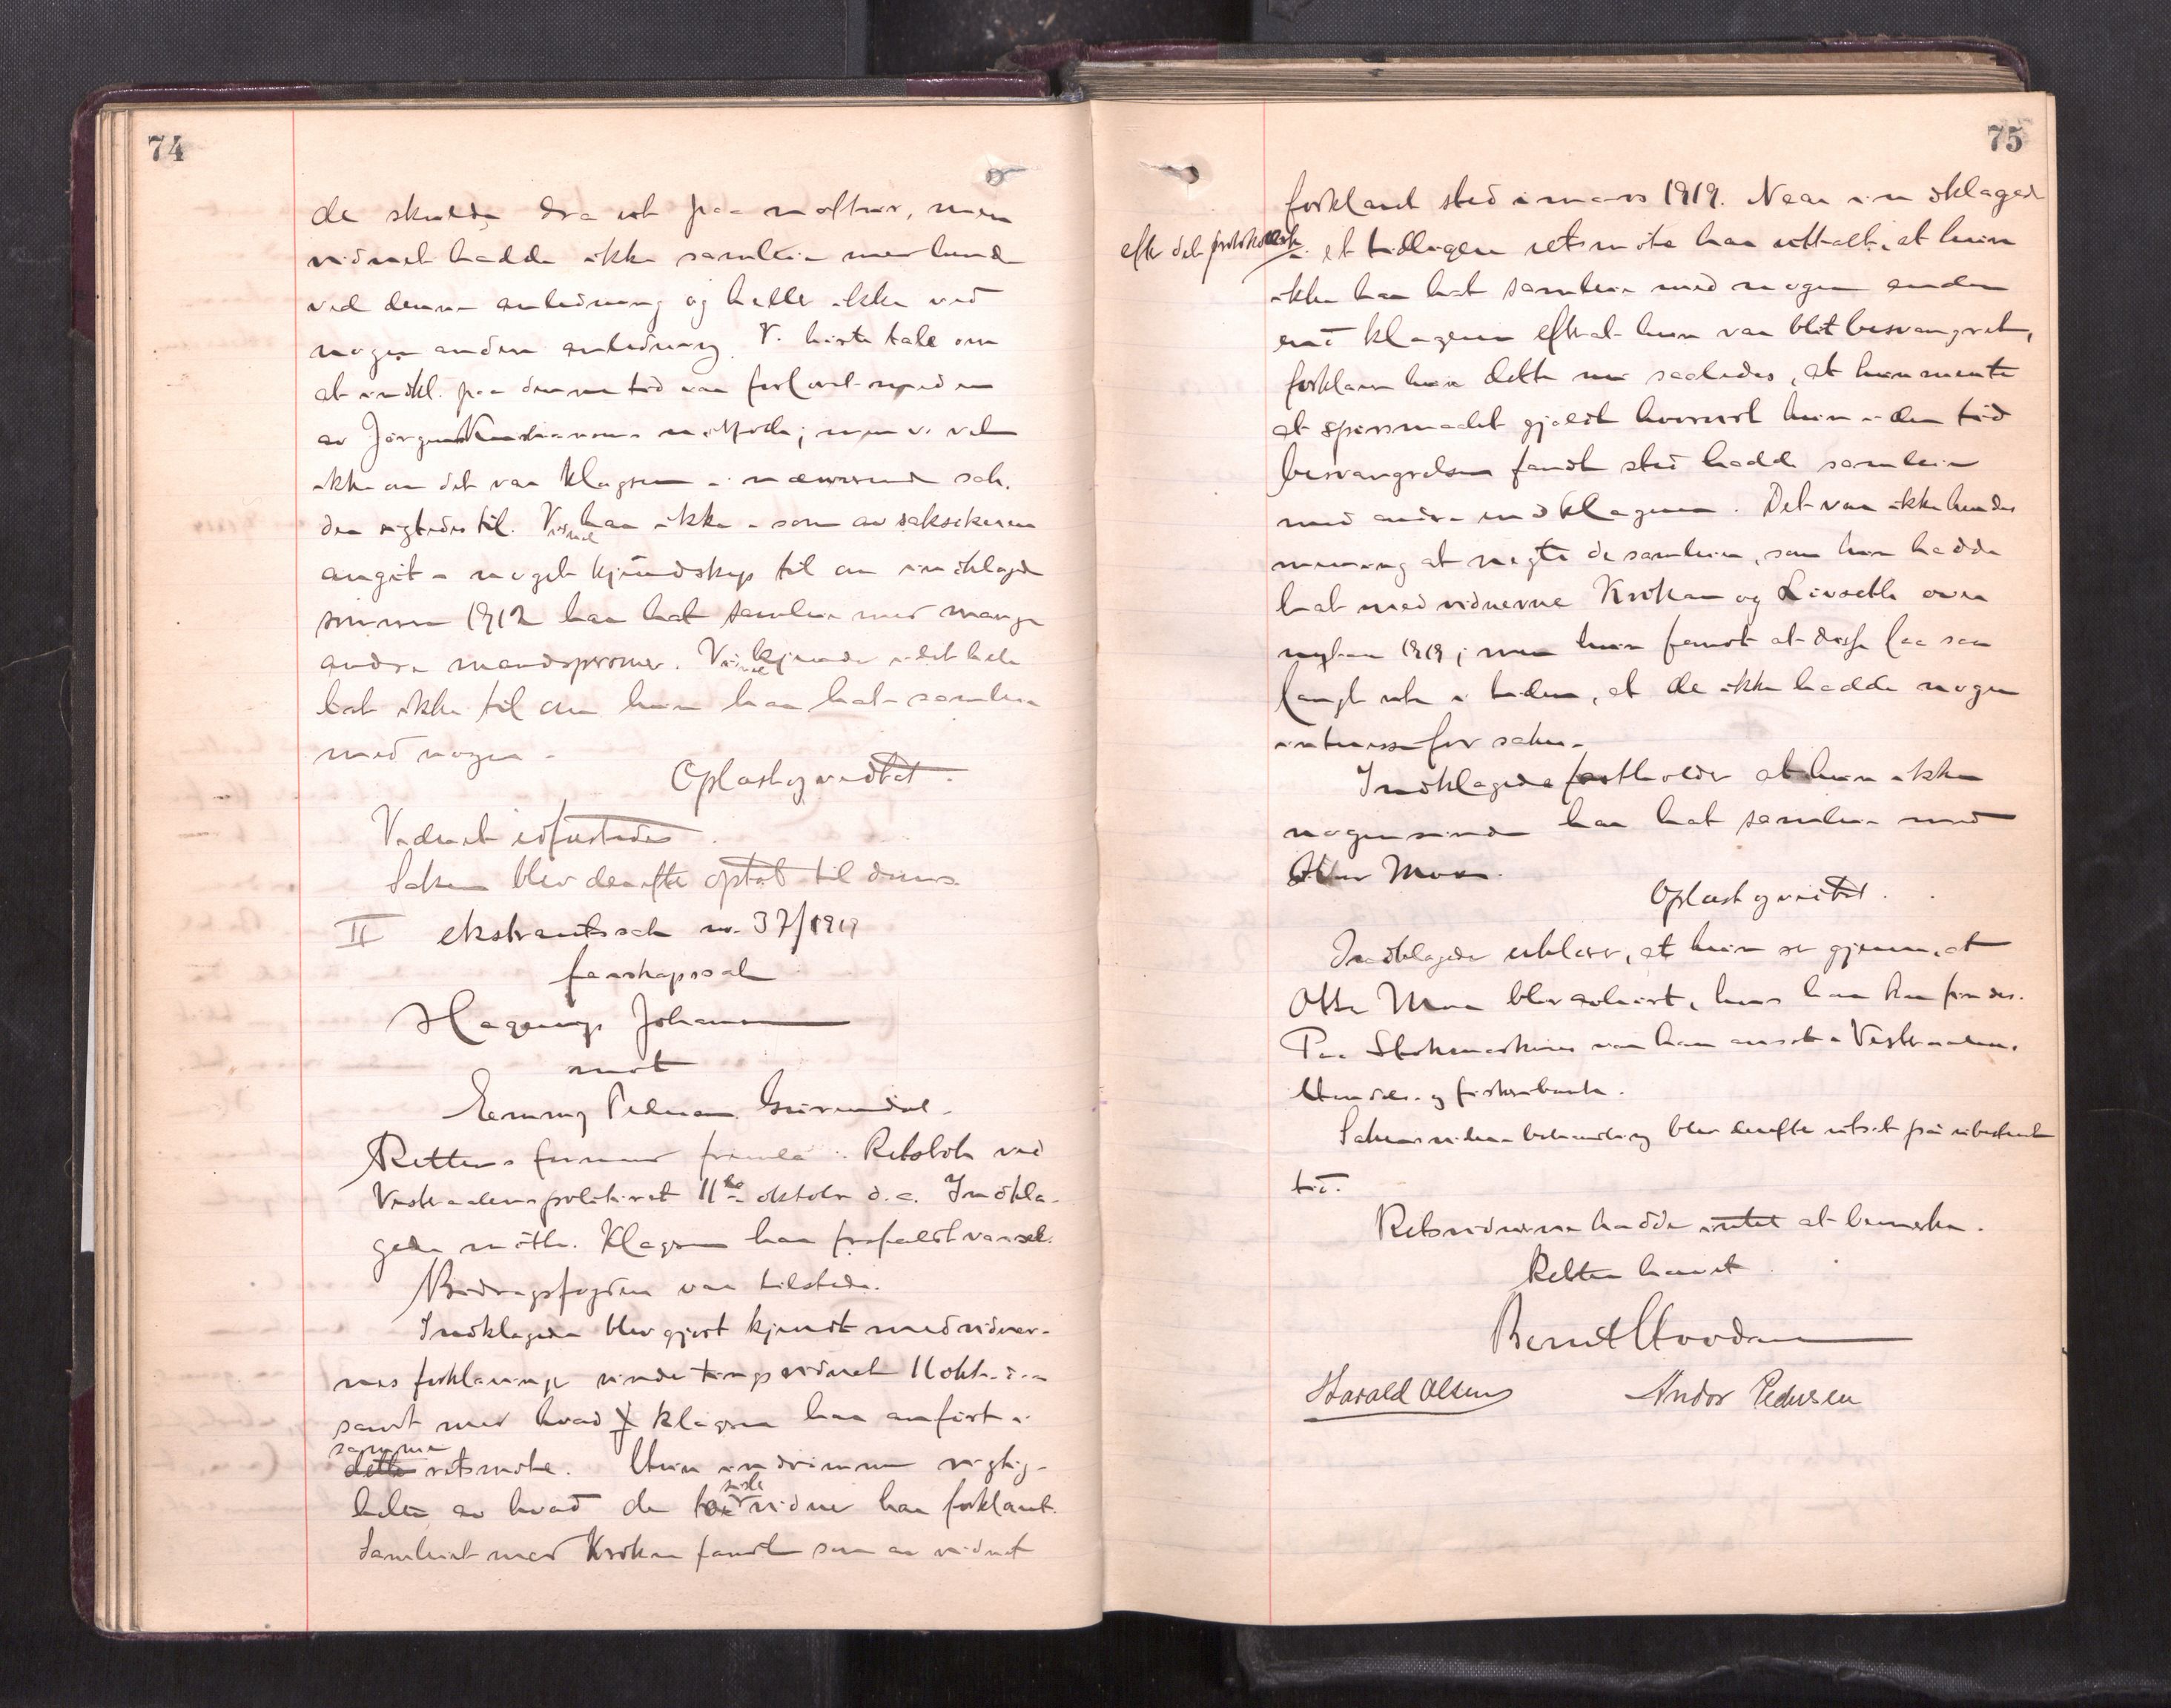 74
de skulde dra ut paa moltetur, men
vidnet hadde ikke samleie med hende
ved denne anledning og heller ikke ved
nogen anden anledning. V. hørte tale om
at indkl. paa denne tid var forlovet med en
av Jørgen Kristiansens; men v. vet
ikke om det var klageren i nærværende sak,
den sigtedes til. Vidnet har ikke som av saksøkeren
angit noget kjendskap til om indklagede
sommeren 1912 har hat samleie med mange
andre mandspersoner. Vidnet kjender i det hele
tat ikke til om hun har hat samleie
med nogen.
Oplæst og vedtat.
Vidnet idfæstedes.
Saken blev derefter optat til doms.
II ekstraretssak nr. 37/1919
farskapssak
Hagerup Johansen
mot
Emmy Petrea
Rettens formand fremla: Retsbok ved
Vesteraalens politiret 11te oktober d.a. Indkla-
gede møtte. Klageren har frafaldt varsel.
Bidragsfogden var tilstede.
Indklagede blev gjort kjendt med vidner-
nes forklaringer under tingsvidnet 11 okt. d.a.
samt med hvad klageren har anført i
samme
dette retsmøte. Hun indrømmer rigtig-
siste
heten av hvad de to vidner har forklart.
Samleiet med Kroken fandt som av vidnet
75
forklart sted i mars 1919. Naar indklagede
efter det protokollerte i et tidligere retsmøte har uttalt, at hun
ikke har hat samleie med nogen anden
end klageren efterat hun var blit besvangret,
forklarer hun dette nu saaledes, at hun mente
at spørsmaalet gjaldt hvorvidt hun i den tid
besvangrelsen fandt sted hadde samleie
med andre end klageren. Det var ikke hendes
mening at negte de samleier, som hun hadde
hat med vidnerne Kroken og Livseth over
nytaar 1919; men hun fandt at disse laa saa
langt ute i tiden, at de ikke hadde nogen
interesse for saken.
Indklagede fastholder at hun ikke
nogensinde har hat samleie med
Otter Moen.
Oplæst og vedtat.
Indklagede erklærer, at hun ser gjerne, at
Otter Moen blev avhørt, hvis han kan findes.
Paa Stokmarknes var han ansat i Vesteraalens
Handels- og fiskeribank.
Sakens videre behandling blev derefter utsat paa ubestemt
tid.
Retsvidnerne hadde intet at bemerke.
Retten hævet
Bernt
Harald Olsen Andor Pedersen